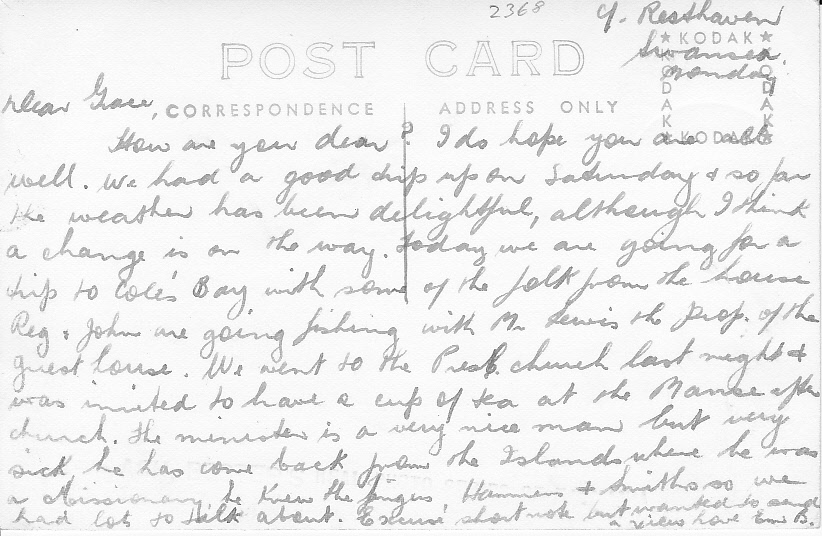 2368
c/. Resthaven
Swansea.
Monday
POST CARD
KODAK
KODAK
KODAK
KODAK
CORRESPONDENCE
ADDRESS ONLY
Dear Grace,
How are you dear? I do hope you are all
well. We had a good trip up on Saturday & so far
the weather has been delightful, although I think
a change is on the way. Today we are going for a
trip to Coles Bay with some of the folk from the house
Reg & John are going fishing with Mr Lewis the prop. of the
guest house. We went to the Presb. church last night &
was invited to have a cup of tea at the Manse after
church. The minister is a very nice man but very
sick he has come back from the Islands where he was
a Missionary, he knew the & Smiths so we
had lots to talk about. Excuse short note but wanted to send
a view love Em B.